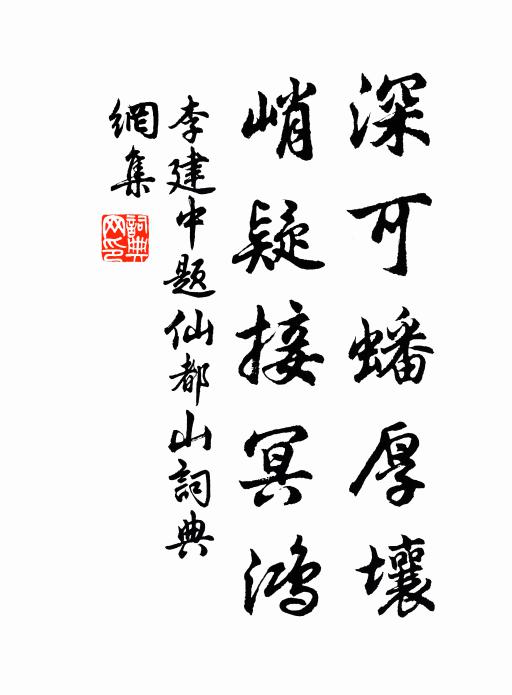 深可蟠厚壤
峭疑接冥鸿
李建中题仙都山詞典
網集
詞典網印